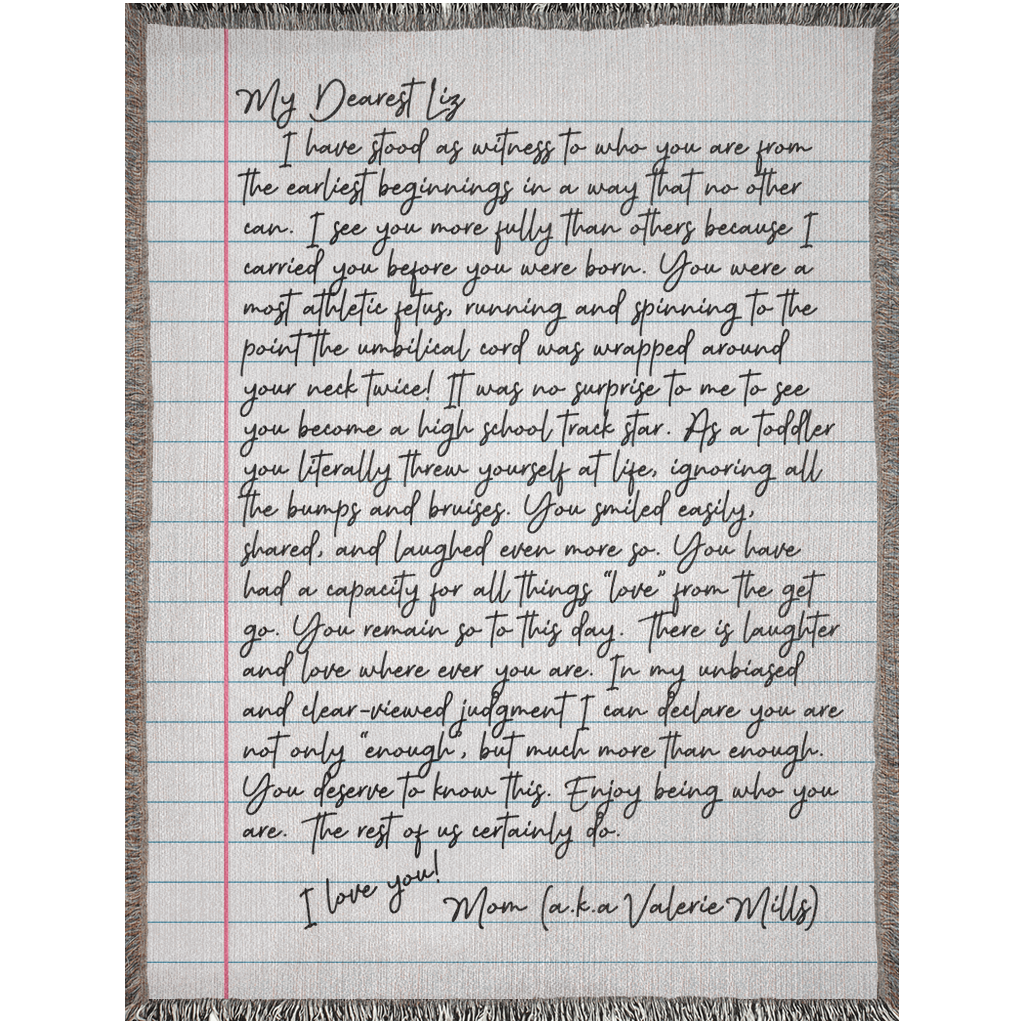 My Dearest Liz
I have stood as witness to who you are from
the earliest beginnings in a way that no other
can. I see you more fully than others because I
carried you before you were born. You were a
most athletic fetus, running and spinning to the
point the umbilical cord was wrapped around
your neck twice! It was no surprise to me to see
you become a high school track star. As a toddler
you literally threw yourself at life, ignoring all
the bumps and bruises. You smiled easily,
shared, and laughed even more so. You have
had a capacity for all things "love" from the get
go. You remain so to this day. There is laughter
and love where ever you are. In my unbiased
and clear-viewed judgment I can declare you are
not only "enough", but much more than enough.
You deserve to know this. Enjoy being who you
are. The rest of us certainly do.
I love you!
Mom (a.k.a Valerie Mills)